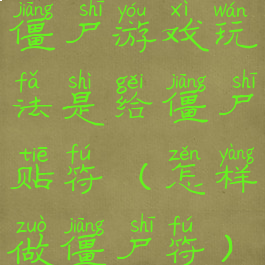 jiāng shī yóu xì wán
僵尸游戏玩
fǎ shì gěi jiāng shī
法是给僵尸
tiē fú zěn yàng
贴符（怎样
zuò jiāng shī fú
做僵尸符）